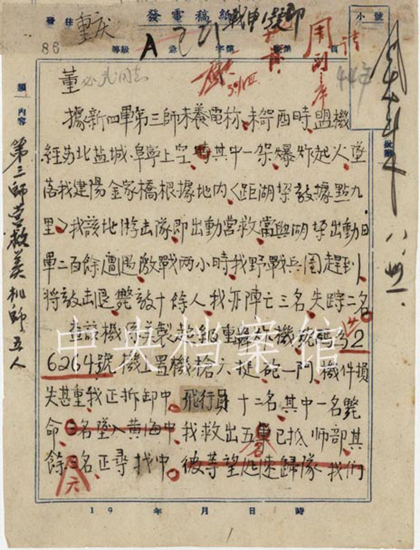 發電稿紙
發往 重慶
86
等級 A
小號
董必武同志
據新四軍第三師未養電稱，未哿酉時盟機
經蘇北鹽城阜寧上空，其中一架爆炸起火墜
落我建陽金家橋根據地內（距湖垜敵據點九
里）。我該地游击隊即出動營救，當與湖垜出動日
軍二百餘遭遇激戰兩小時，我野戰兵團趕到
將敵击退，斃敵十餘人，我亦陣亡三名，失踪二名。
該機係
超級重轟炸機，號碼為42
6264號，機上置機槍六挺砲一門，機件損
失甚重，我正拆卸中。飛行員十二名，其中一名斃
命，名墜入黃海中，我救出五名已抵師部，其
餘名正尋找中。彼等望迅速歸隊，我們
內容
第三師营救美机師五人
中央档案馆
19 年 月 日 時
1